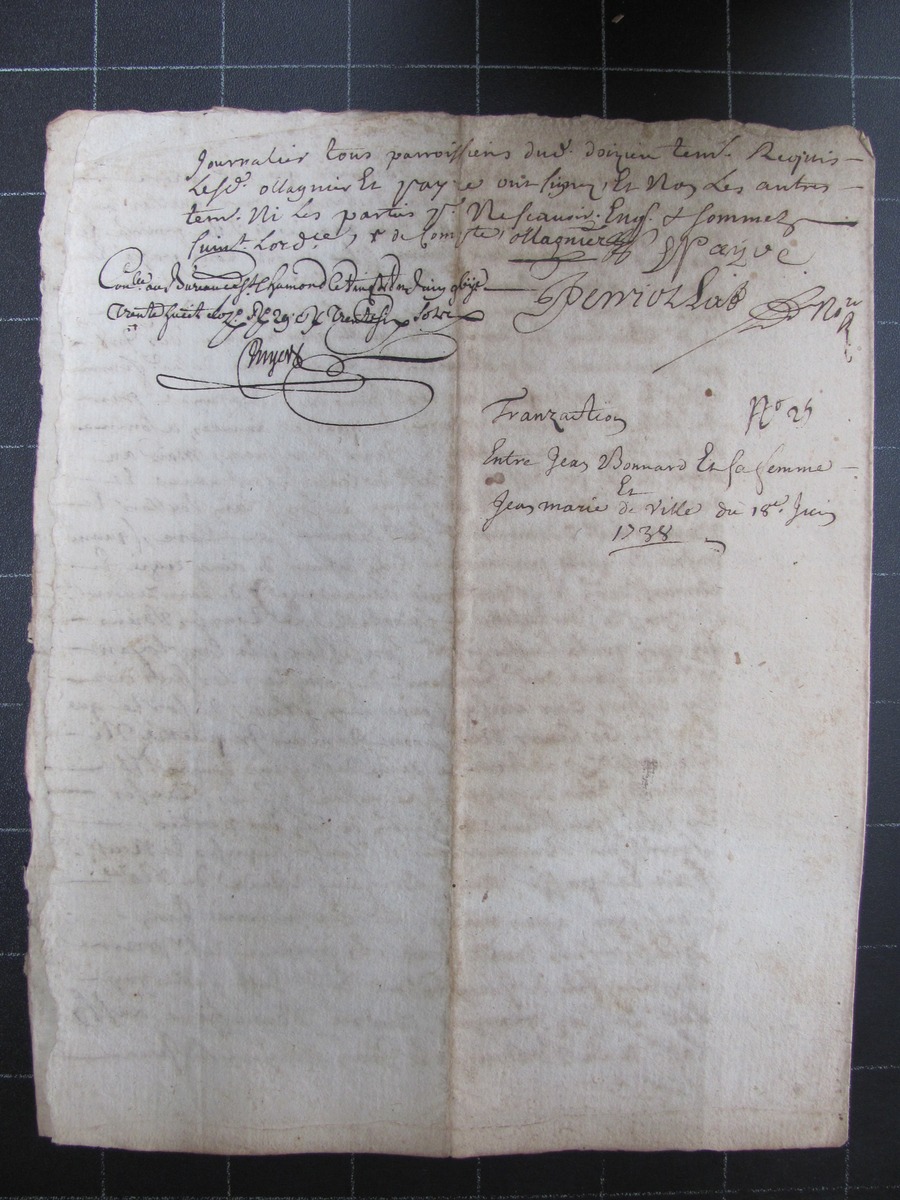 Journalier tous parroissiens dud. doizieu tem. Requis
Lesd. ollagnier Et payre ont signez, Et Non Les autres
tem. Ni Les parties pr. Ne scavoir. Enq. & sommez
suivt. Lordce, & de Compte ollagnier payre
Conlle. au Bureau de St. Chamond le vingt
trente huit trente six sols
Perriolliat Nore
R
Tranzaction No 25
Entre Jean Bonnard Et sa femme
Et
Jean marie de Ville du 18e. Juin
1738